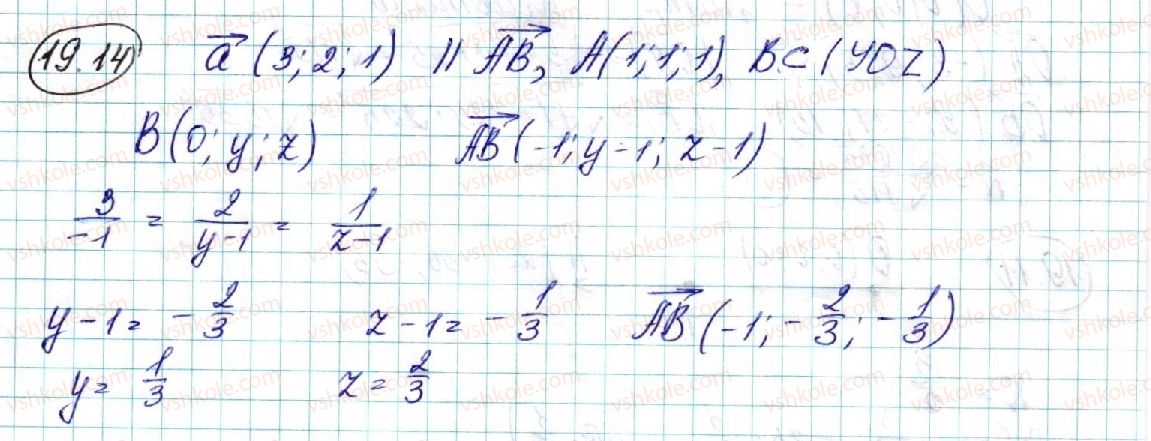 19.14 a⃗ (3; 2; 1) || A⃗B⃗, A(1; 1; 1), B⊂(YOZ)
B(0; y; z) A⃗B⃗(-1; y-1; z-1)
3/-1 = 2/y-1 = 1/z-1
y-1 = -2/3 z-1 = -1/3 A⃗B⃗(-1; -2/3; -1/3)
y = 1/3 z = 2/3